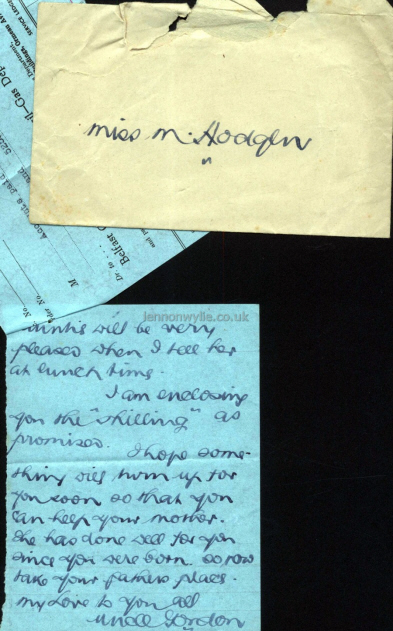 miss M. Hodgen
Gas Dep
Belfast
M
lennonwylie.co.uk
auntie will be very
pleased when I tell her
at lunch time.
I am enclosing
you the "shilling" as
promised.
I hope some-
thing will turn up for
you soon so that you
can help your mother.
She has done well for you
since you were born. so now
take your fathers place.
my love to you all
uncle Gordon